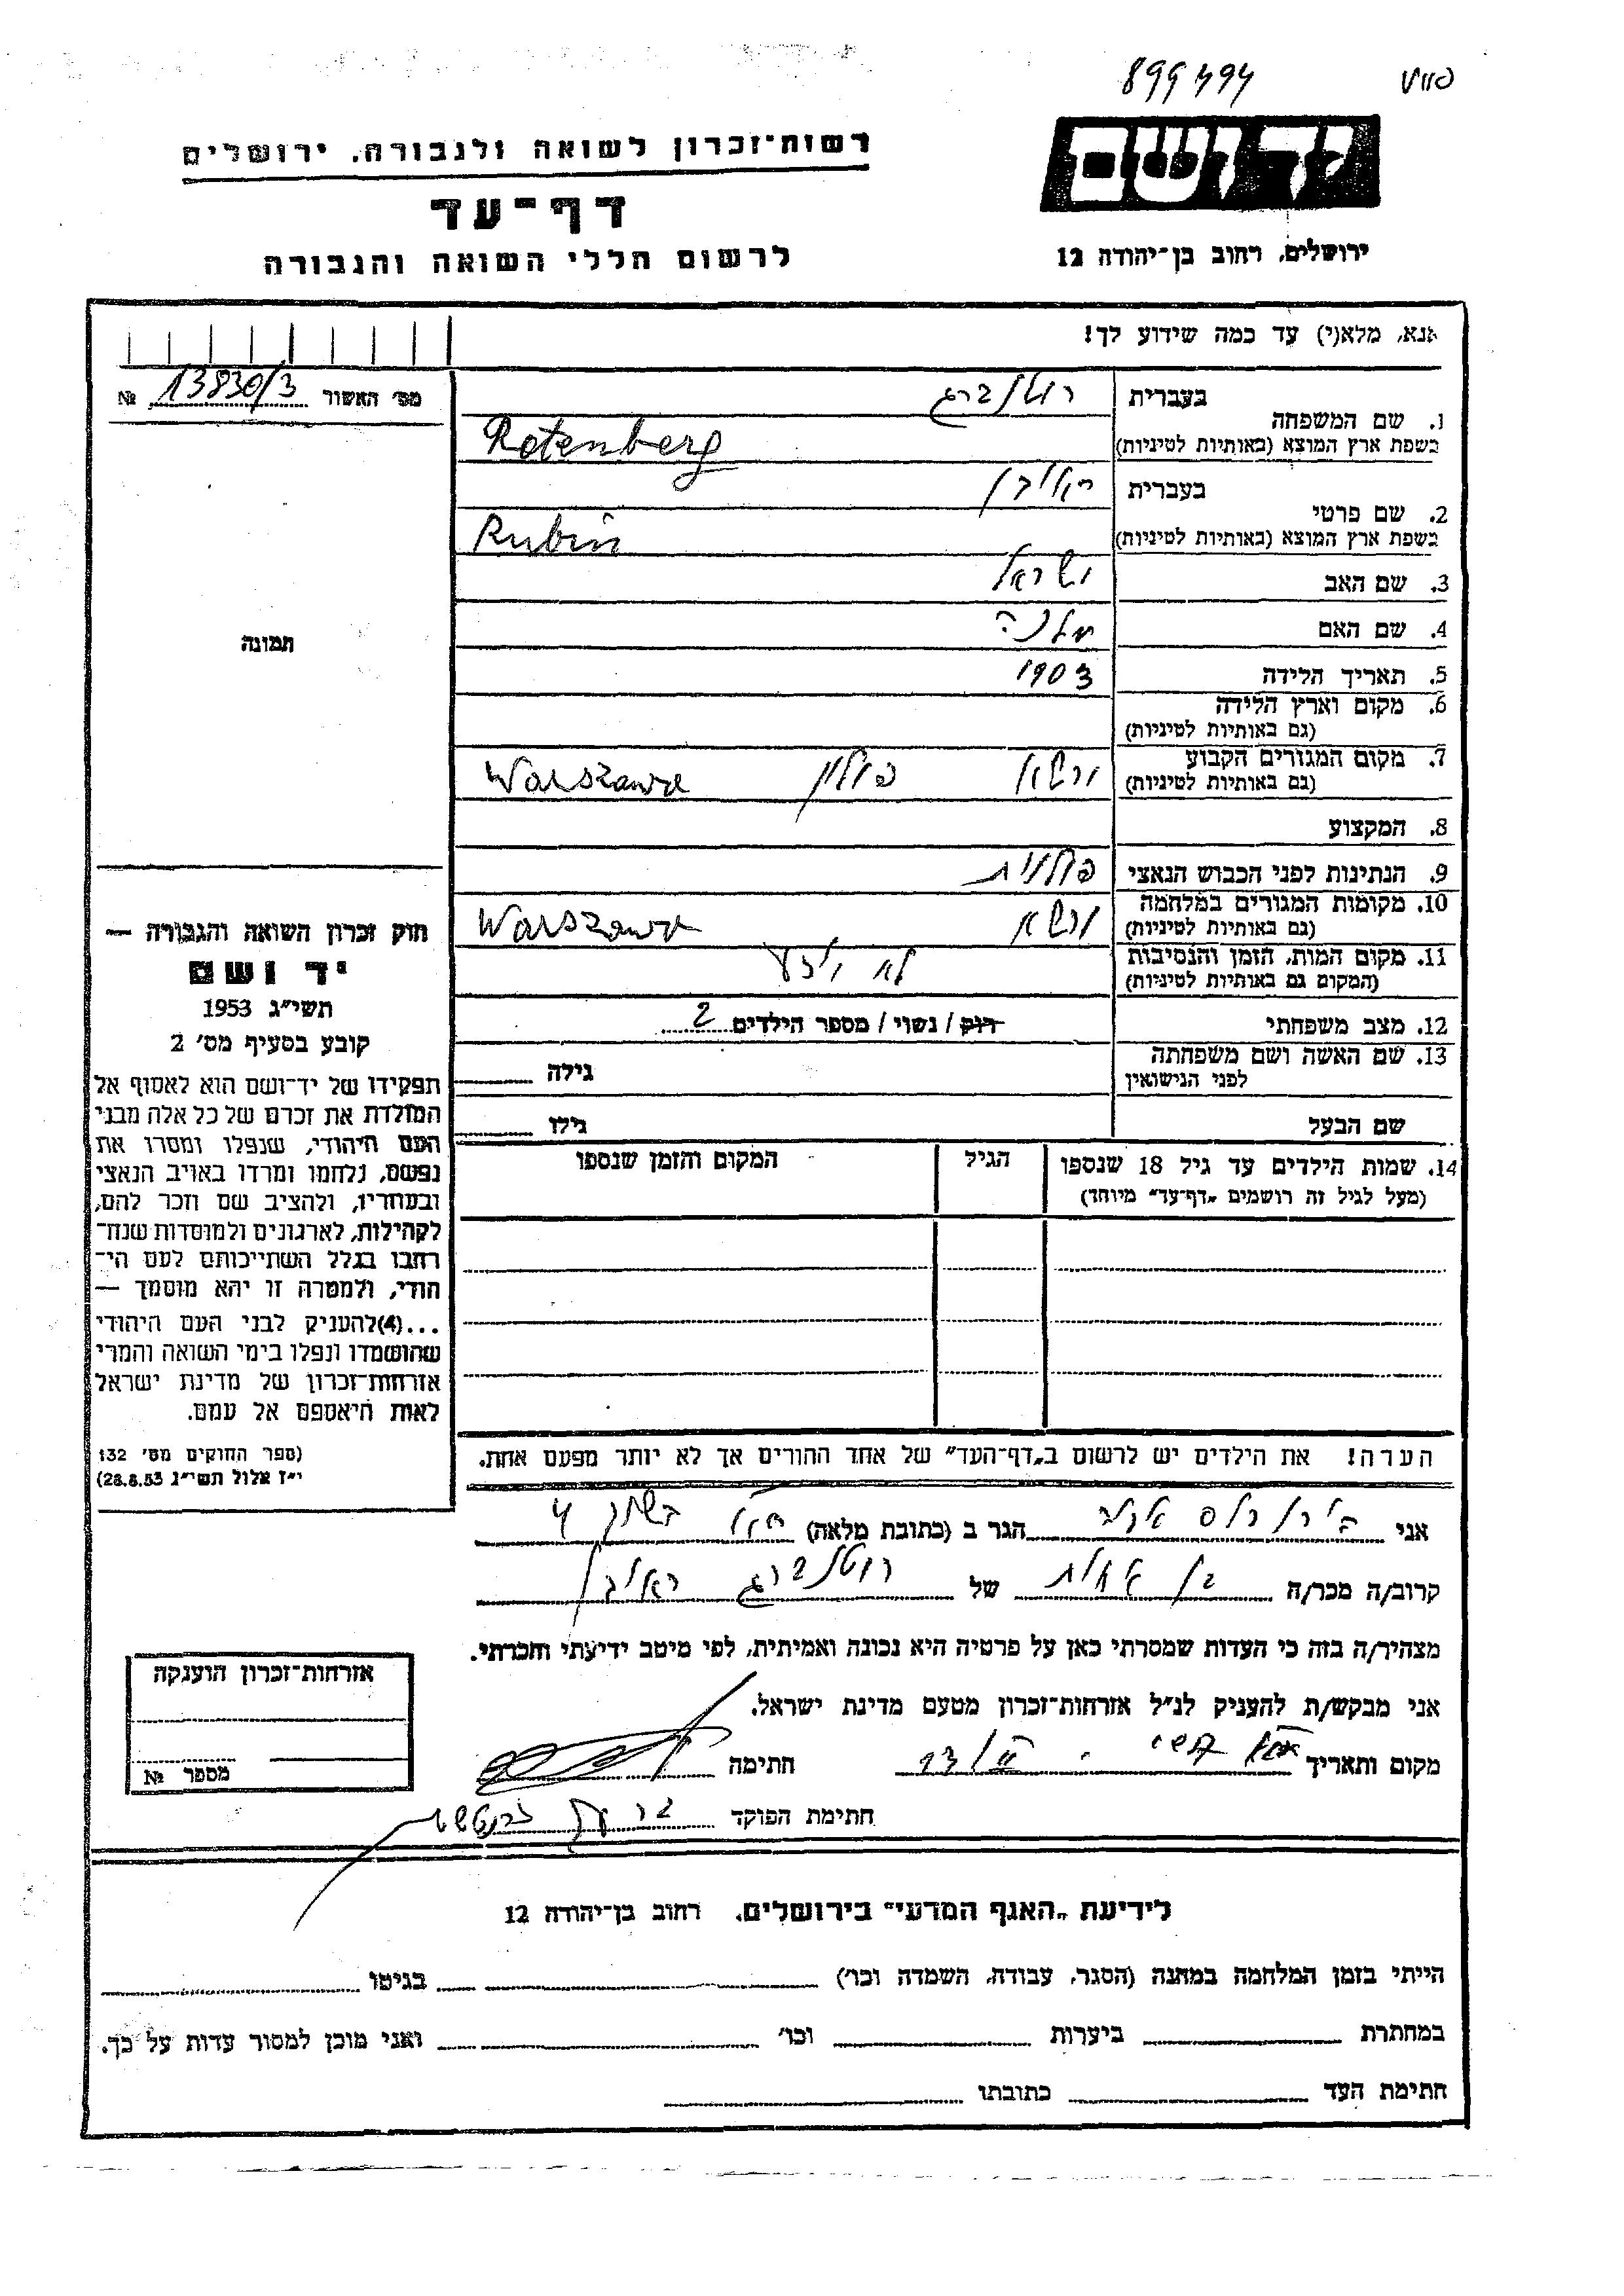 899494
יד ושם
רשות־זכרון לשואה ולגבורה, ירושלים
דף־עד
לרשום חללי השואה והגבורה
ירושלים, רחוב בן־יהודה 12
אנא, מלא(י) עד כמה שידוע לך!
מס׳ האשור 13830/3 №
בעברית רוטנברג
1. שם המשפחה
בשפת ארץ המוצא (באותיות לטיניות) Rotenberg
בעברית ראובן
2. שם פרטי
בשפת ארץ המוצא (באותיות לטיניות) Rubin
3. שם האב ישראל
4. שם האם מלכה
5. תאריך הלידה 1903
6. מקום וארץ הלידה
(גם באותיות לטיניות)
7. מקום המגורים הקבוע ורשא פולין Warszawa
(גם באותיות לטיניות)
8. המקצוע
9. הנתינות לפני הכבוש הנאצי פולנית
10. מקומות המגורים במלחמה ורשא Warszawa
(גם באותיות לטיניות)
11. מקום המות, הזמן והנסיבות לא ידוע
(המקום גם באותיות לטיניות)
12. מצב משפחתי רוק / נשוי / מספר הילדים 2
13. שם האשה ושם משפחתה גילה
לפני הנישואין
שם הבעל גילו
14. שמות הילדים עד גיל 18 שנספו הגיל המקום והזמן שנספו
(מעל לגיל זה רושמים „דף־עד״ מיוחד)
הערה! את הילדים יש לרשום ב„דף־העד״ של אחד ההורים אך לא יותר מפעם אחת.
תמונה
חוק זכרון השואה והגבורה —
יד ושם
תשי״ג 1953
קובע בסעיף מס׳ 2
תפקידו של יד־ושם הוא לאסוף אל
המולדת את זכרם של כל אלה מבני
העם היהודי, שנפלו ומסרו את
נפשם, נלחמו ומרדו באויב הנאצי
ובעוזריו, ולהציב שם וזכר להם,
לקהילות, לארגונים ולמוסדות שנח־
רבו בגלל השתייכותם לעם הי־
הודי, ולמטרה זו יהא מוסמך —
...(4)להעניק לבני העם היהודי
שהושמדו ונפלו בימי השואה והמרי
אזרחות־זכרון של מדינת ישראל
לאות היאספם אל עמם.
(ספר החוקים מס׳ 132
י״ז אלול תשי״ג 28.8.53)
אני הגר ב (כתובת מלאה) 4
קרוב/ה מכר/ה בן אחות של רוטנברג ראובן
מצהיר/ה בזה כי העדות שמסרתי כאן על פרטיה היא נכונה ואמיתית, לפי מיטב ידיעתי והכרתי.
אני מבקש/ת להעניק לנ״ל אזרחות־זכרון מטעם מדינת ישראל.
מקום ותאריך חתימה
חתימת הפוקד
אזרחות־זכרון הוענקה
מספר №
לידיעת „האגף המדעי״ בירושלים, רחוב בן־יהודה 12
הייתי בזמן המלחמה במחנה (הסגר, עבודה, השמדה וכו׳) בגיטו
במחתרת ביערות וכו׳ ואני מוכן למסור עדות על כך.
חתימת העד כתובתו